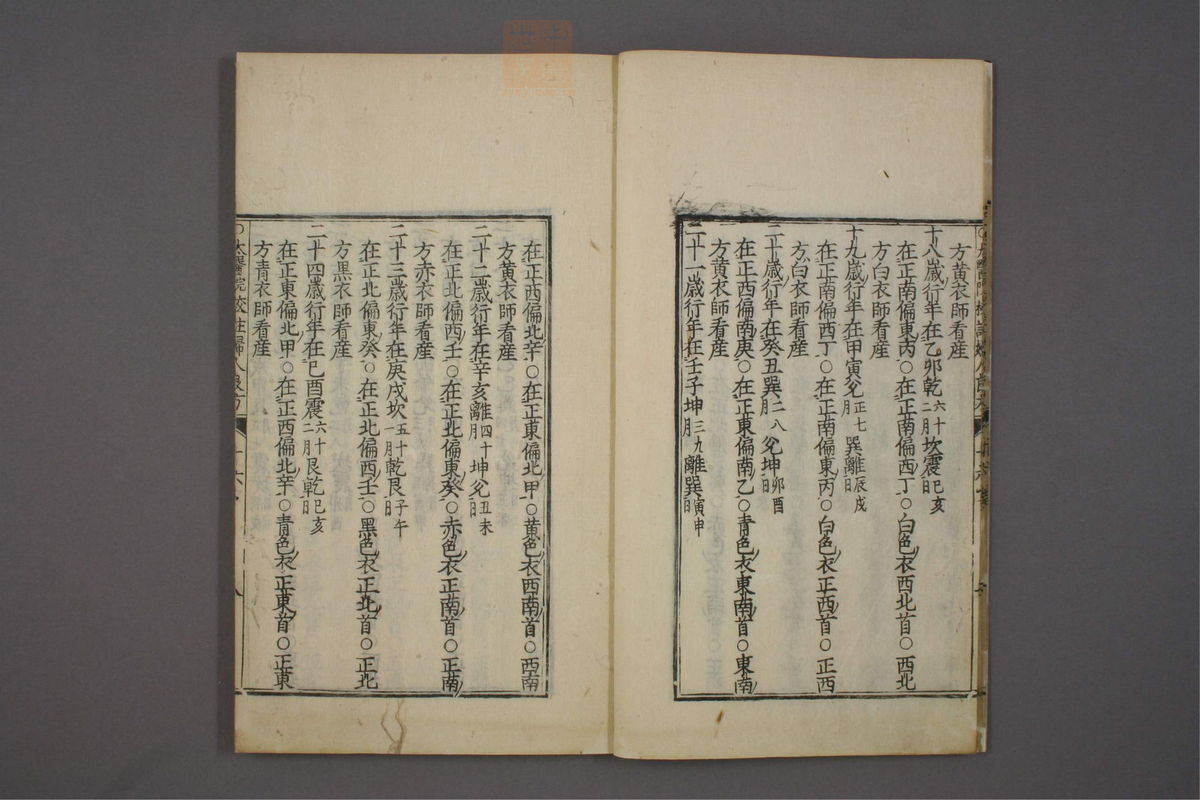 方黄衣師看産
十八歲行年在乙卯乾六十二月坎震巳亥日
在正南偏東丙○在正南偏西丁○白色衣西北首○西北
方白衣師看産
十九歲行年在甲寅兊正七月巽離辰戌日
在正南偏西丁○在正南偏東丙○白色衣正西首○正西
方白衣師看産
二十歲行年在癸丑巽二八月兊坤卯酉日
在正西偏南庚○在正東偏南乙○青色衣東南首○東南
方黄衣師看産
二十一歲行年在壬子坤三九月離巽寅申日
在正西偏北辛○在正東偏北甲○黄色衣西南首○西南
方黄衣師看産
二十二歲行年在辛亥離四十月坤兊丑未日
在正北偏西壬○在正北偏東癸○赤色衣正南首○正南
方赤衣師看産
二十三歲行年在庚戌坎五十一月乾艮子午日
在正北偏東癸○在正北偏西壬○黑色衣正北首○正北
方黑衣師看産
二十四歲行年在己酉震六十二月艮乾巳亥日
在正東偏北甲○在正西偏北辛○青色衣正東首○正東
方青衣師看産
○太醫院校註婦人良方 十六 八